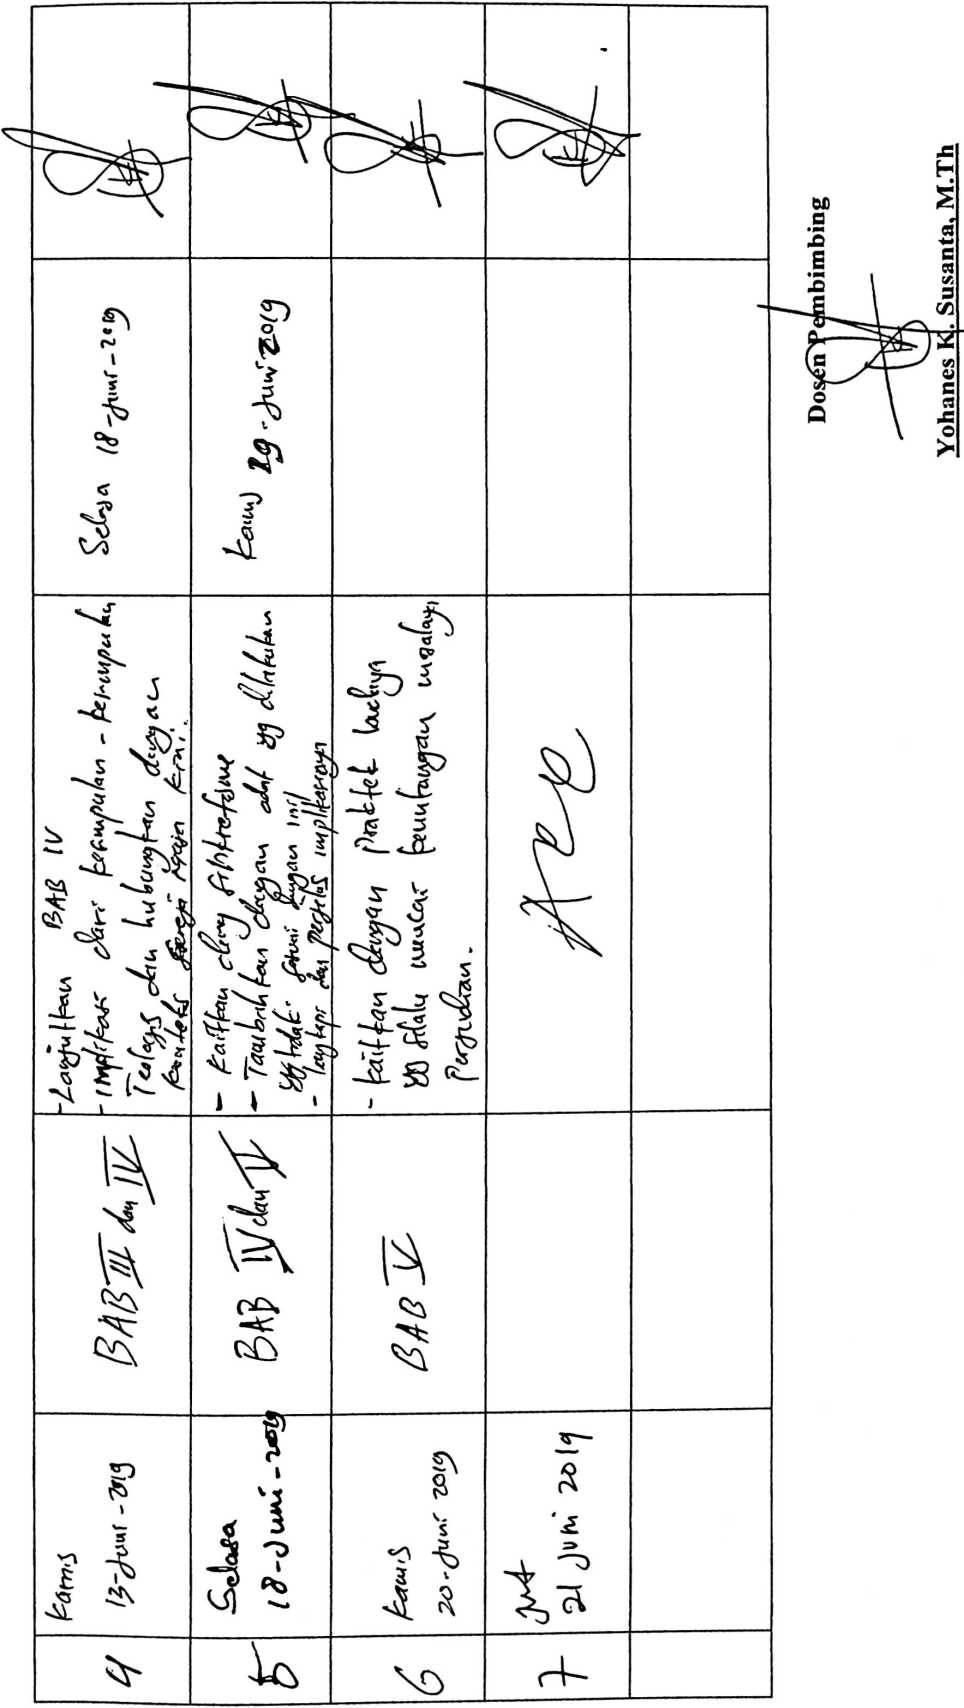 4
Kamis
13-Juni-2019
BAB III dan IV
- Lanjutkan BAB IV
- Implikasi dari kesimpulan-kesimpulan
Teologis dan hubungkan dengan
konteks gereja kini.
Selasa 18-Juni-2019
5
Selasa
18-Juni-2019
BAB IV dan V
- Kaitkan dengan
- Tambahkan dengan adat yg dilakukan
yg tidak dengan ini
- lengkapi dan perjelas implikasinya
Kamis 20-Juni 2019
6
Kamis
20-Juni 2019
BAB V
- kaitkan dengan praktek budaya
yg selalu mencari keuntungan
Perjudian.
7
21 Juni 2019
Dosen Pembimbing
Yohanes K. Susanta, M.Th